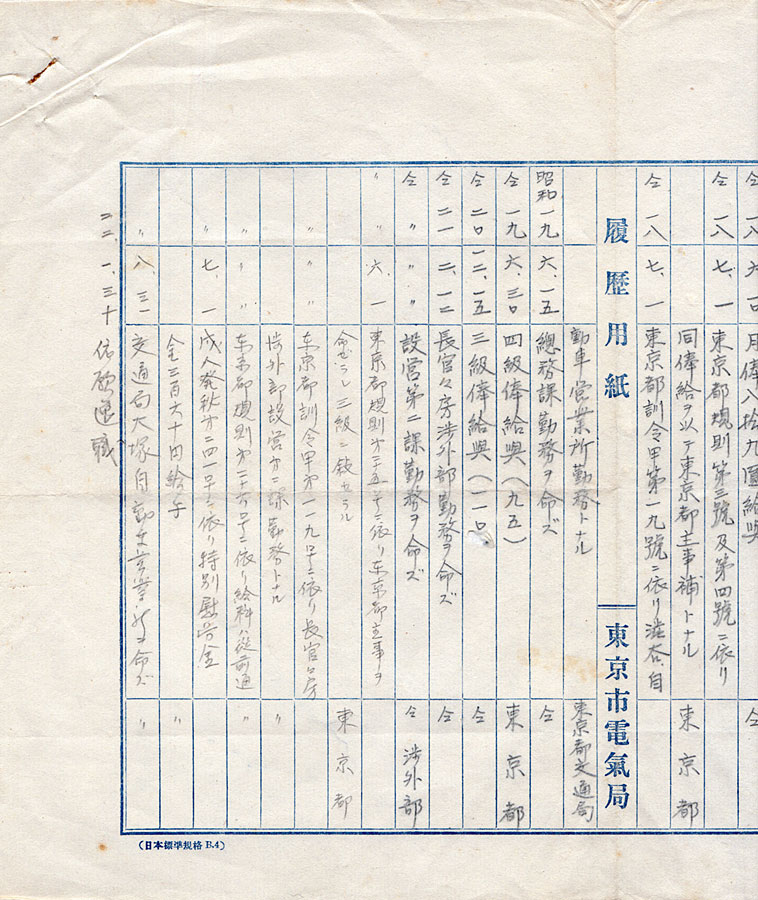 仝 一八 六 一〇 月俸八拾九圓給與 仝
仝 一八 七、一 東京都規則第三號及第四號ニ依リ
同俸給ヲ以テ東京都主事補トナル 東京都
仝 一八 七、一 東京都訓令甲第一九號ニ依リ澁谷自
履歴用紙 東京市電氣局
動車営業所勤務トナル 東京都交通局
昭和一九 六、一五 總務課勤務ヲ命ズ 仝
仝 一九 六、三〇 四級俸給與(九五) 東京都
仝 二〇 一二、一五 三級俸給與(一一〇) 仝
仝 二一 二、一二 長官々房渉外部勤務ヲ命ズ 仝
仝 〃 〃、〃 設営第二課勤務ヲ命ズ 仝 渉外部
〃 六、一 東京都規則第三十五号ニ依リ東京都主事ヲ
命ゼラレ三級ニ敍セラル 東京都
〃 〃 東京都訓令甲第一一九号ニ依リ長官々房
渉外部設営第二課勤務トナル 〃
〃 〃 東京都規則第三十六号ニ依リ給料ハ従前通 〃
〃 七、一 発秘第二四一号ニ依リ特別慰労金
金三百六十円給与 〃
〃 八、三一 交通局大塚自動車営業所勤ヲ命ズ 〃
二二、一、三十 依願退職
(日本標準規格 B.4)